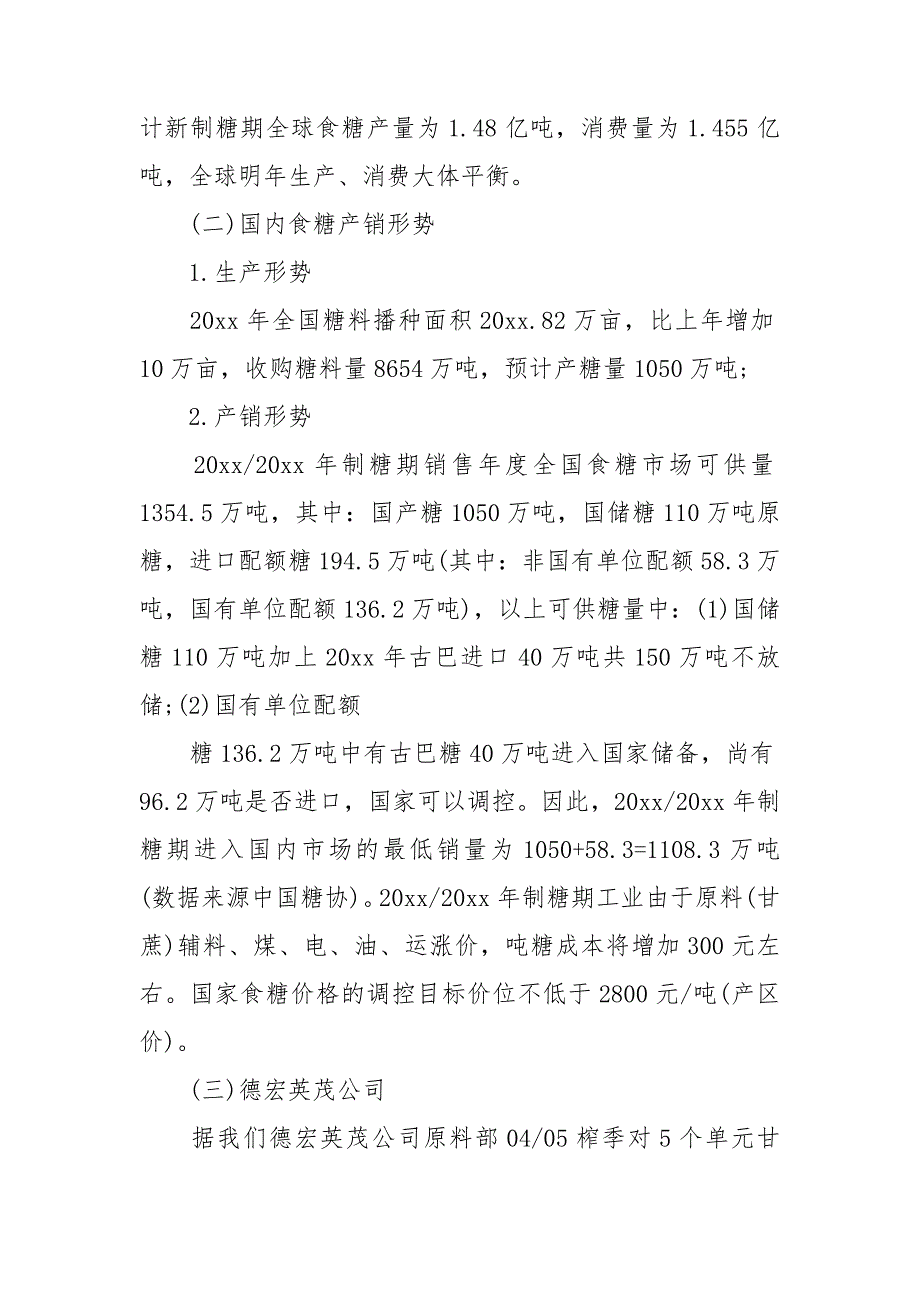 计新制糖期全球食糖产量为 1.48 亿吨，消费量为 1.455 亿
吨，全球明年生产、消费大体平衡。
(二)国内食糖产销形势
1.生产形势
20xx 年全国糖料播种面积 20xx.82 万亩，比上年增加
10 万亩，收购糖料量 8654 万吨，预计产糖量 1050 万吨;
2.产销形势
20xx/20xx 年制糖期销售年度全国食糖市场可供量
1354.5 万吨，其中：国产糖 1050 万吨，国储糖 110 万吨原
糖，进口配额糖 194.5 万吨(其中：非国有单位配额 58.3 万
吨，国有单位配额 136.2 万吨)，以上可供糖量中：(1)国储
糖 110 万吨加上 20xx 年古巴进口 40 万吨共 150 万吨不放
储;(2)国有单位配额
糖 136.2 万吨中有古巴糖 40 万吨进入国家储备，尚有
96.2 万吨是否进口，国家可以调控。因此，20xx/20xx 年制
糖期进入国内市场的最低销量为 1050+58.3=1108.3 万吨
(数据来源中国糖协)。20xx/20xx 年制糖期工业由于原料(甘
蔗)辅料、煤、电、油、运涨价，吨糖成本将增加 300 元左
右。国家食糖价格的调控目标价位不低于 2800 元/吨(产区
价)。
(三)德宏英茂公司
据我们德宏英茂公司原料部 04/05 榨季对 5 个单元甘